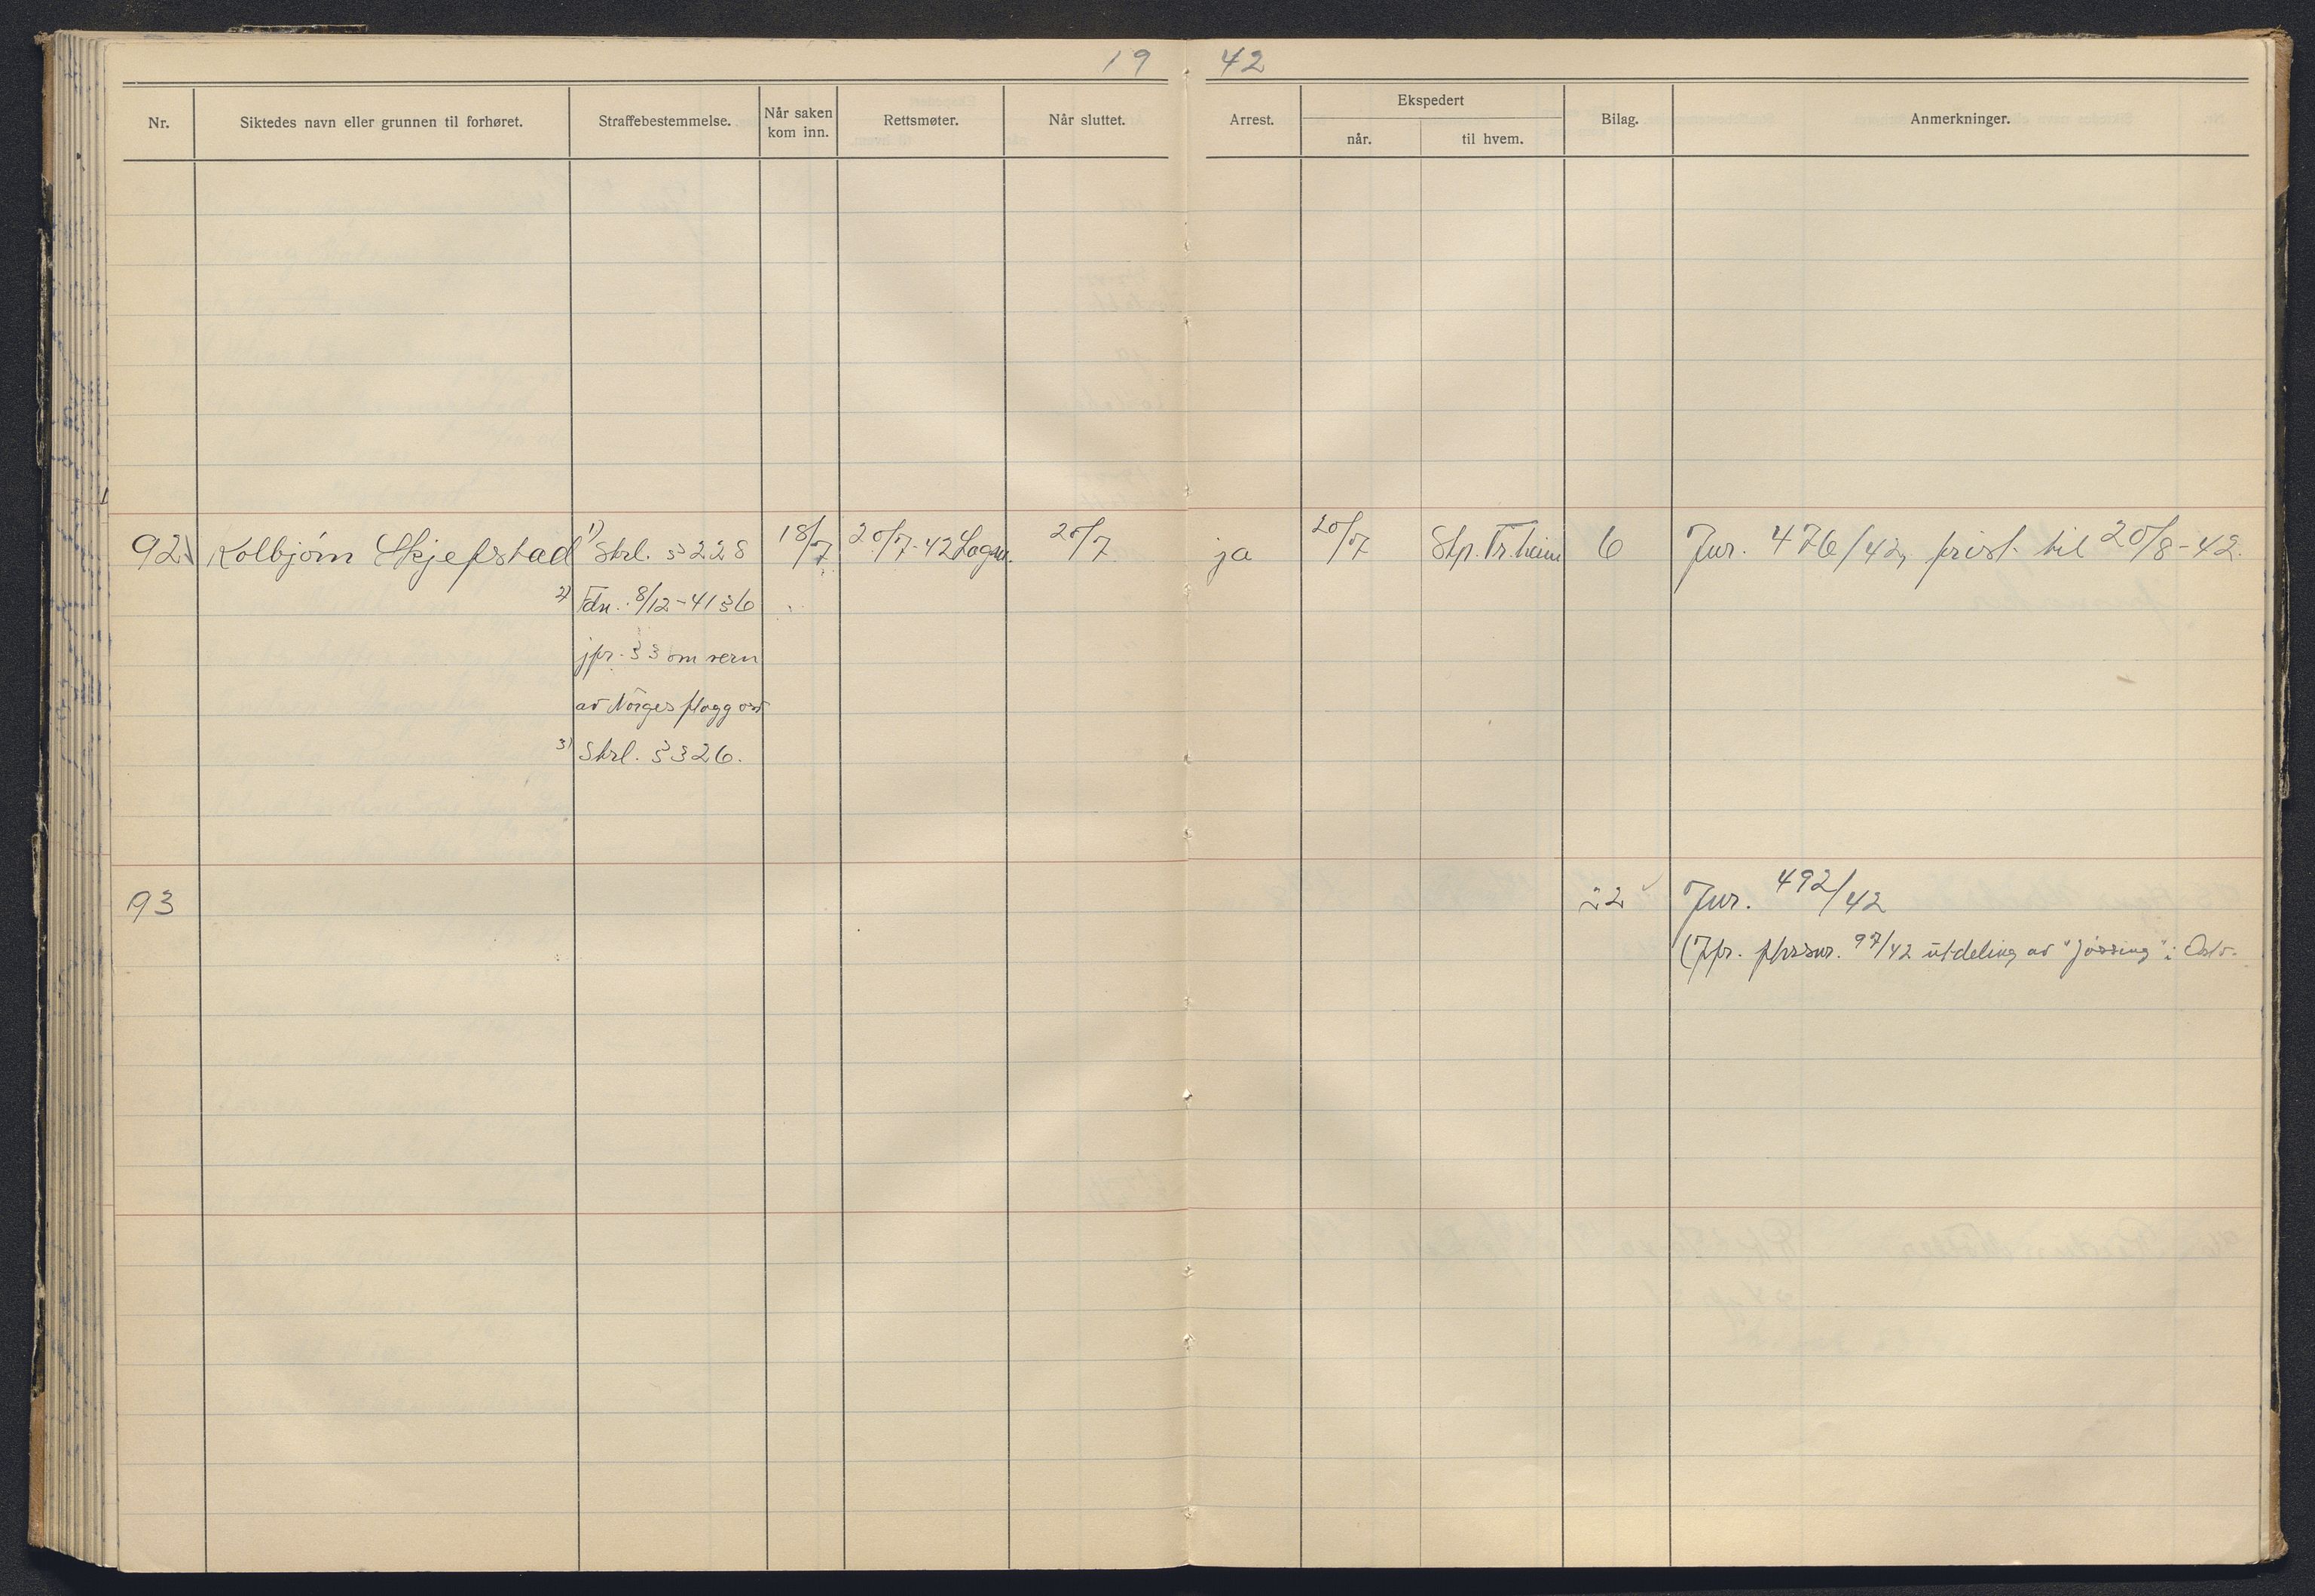 19 42
Nr. Siktedes navn eller grunnen til forhøret. Straffebestemmelse. Når saken kom inn. Rettsmøter. Når sluttet. Arrest. Ekspedert når. til hvem. Bilag. Anmerkninger.
92. Kolbjørn Skjefstad 1) Strl. § 228 18/7 20/7-42 Lagm. 20/7 ja 20/7 Stp. Tr.heim 6 Jnr. 476/42, frist til 20/8-42.
2) Fdn. 8/12-41 § 6
jfr. § 3 om vern
av Norges flagg osv
3) Strl. § 326.
93 22 Jnr. 492/42
(Jfr. 97/42 utdeling av "Jøssing" i Oslo.